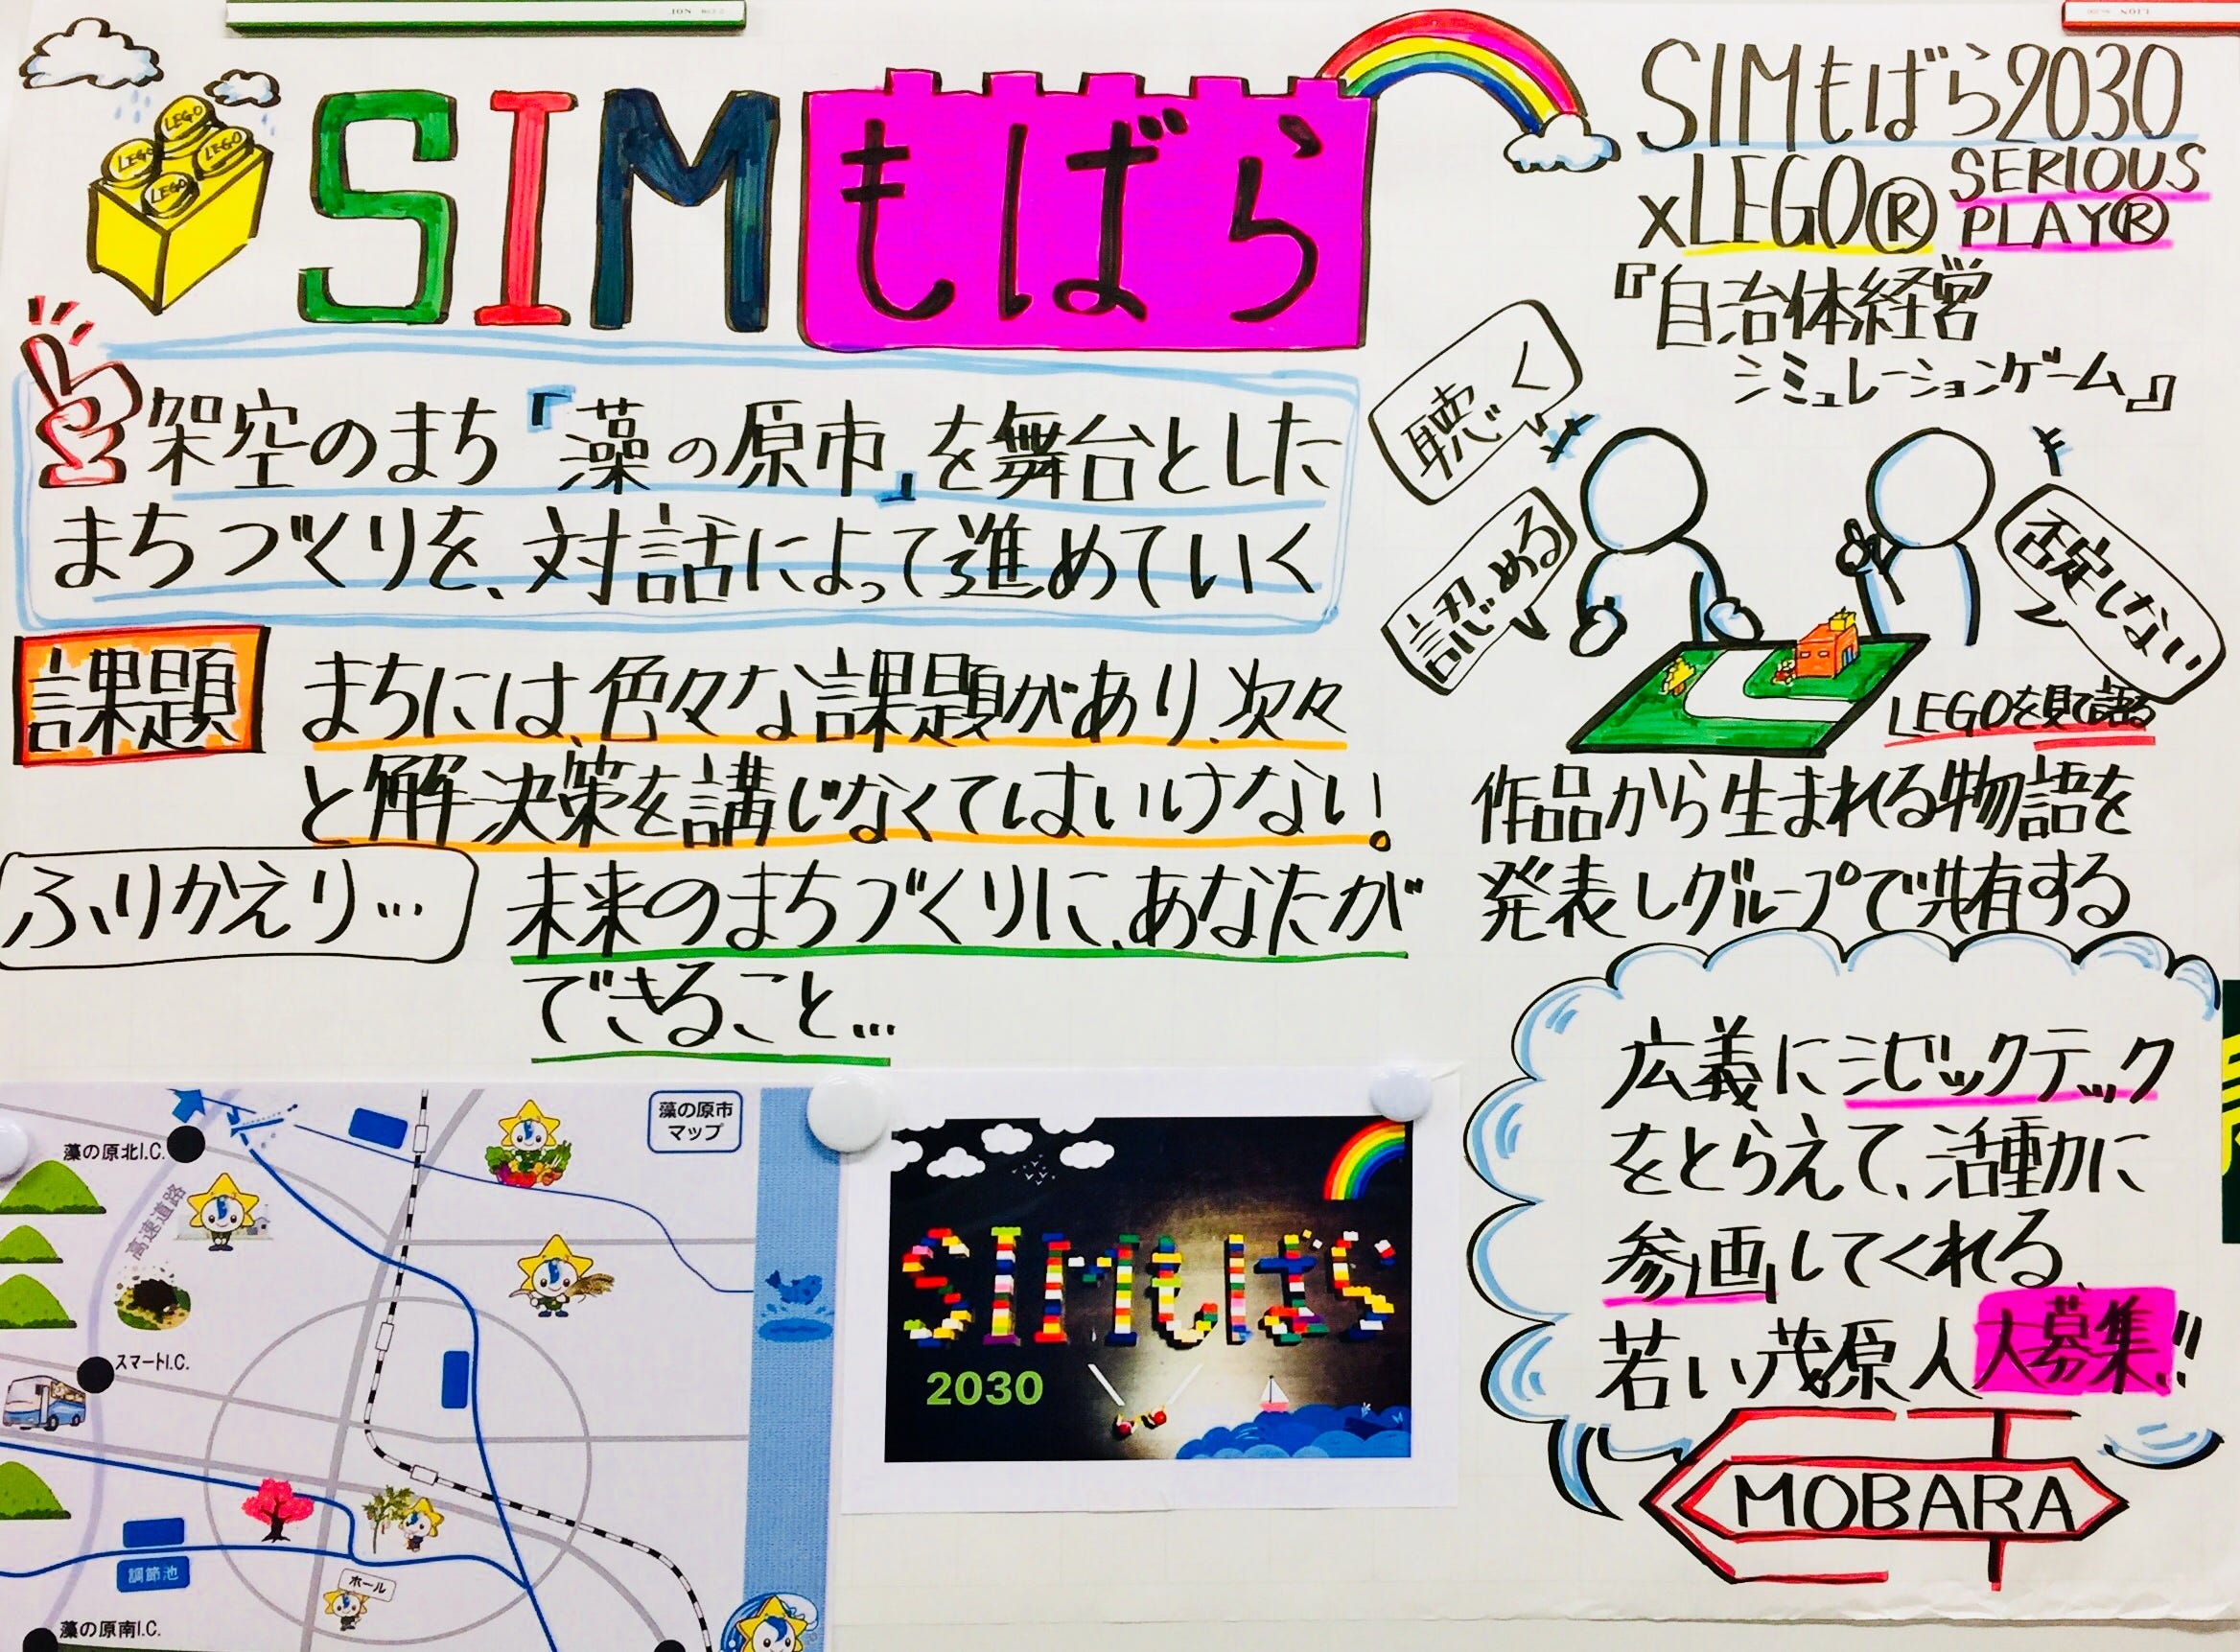 SIMもばら
LEGO
LEGO
LEGO
LEGO
架空のまち『藻の原市』を舞台とした
まちづくりを、対話によって進めていく
課題
まちには、色々な課題があり、次々
と解決策を講じなくてはいけない!
ふりかえり…
未来のまちづくりに、あなたが
できること…
SIMもばら2030
xLEGO® SERIOUS
PLAY®
『自治体経営
シミュレーションゲーム』
聴く
認める
否定しない
LEGOを見て語る
作品から生まれる物語を
発表しグループで共有する
広義にシビックテック
をとらえて、活動に
参画してくれる、
若い茂原人大募集!!
MOBARA
藻の原市
マップ
藻の原北I.C.
高速道路
スマートI.C.
調節池
ホール
藻の原南I.C.
SIMもばら
2030
LION